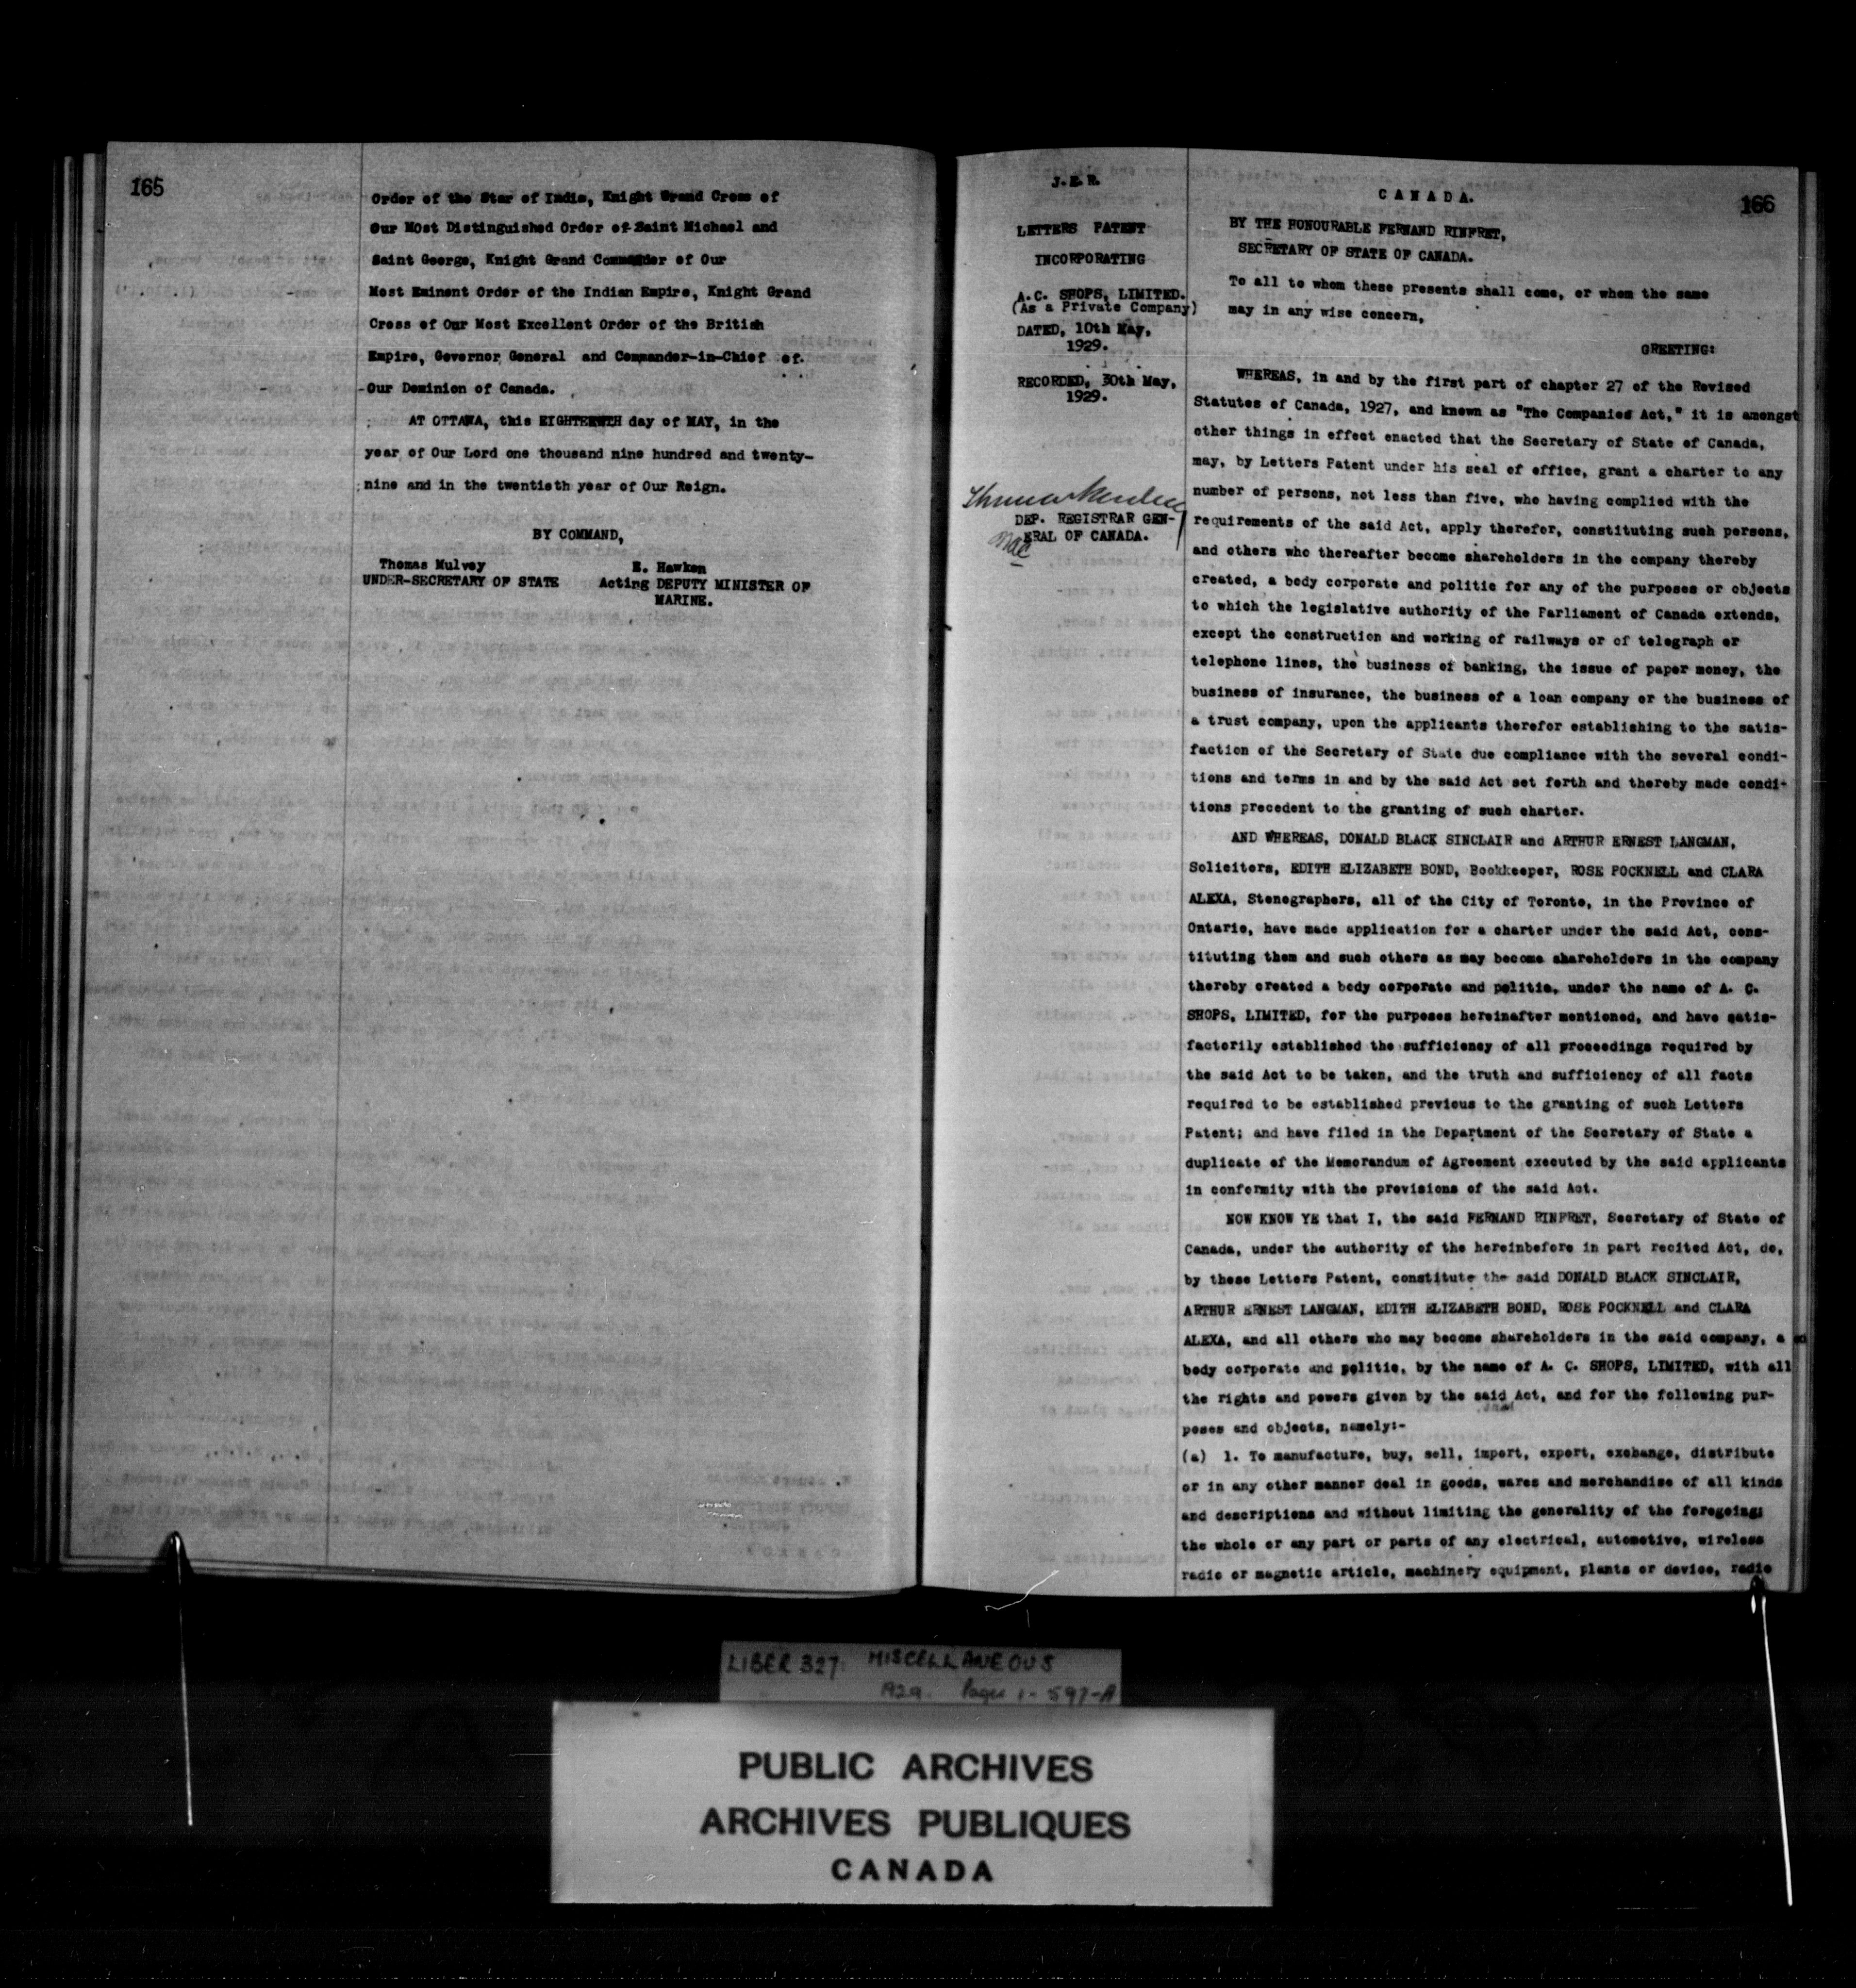 165
Order of the Star of India, Knight Grand Cross of
Our MOst Distinguished Order of Saint Michael and
Saint George, Knight Grand Commander of Our
Most Eminent Order of the Indian Empire, Knight Grand
Cross of Our Most Excellent Order of the British
Empire, Governor General and Commander-in-Chief of
Our Dominion of Canada.
AT OTTAWA, this EIGHTEENTH day of MAY, in the
year of Our Lord one thousand nine hundred and twenty-
nine and in the twentieth year of Our Reign.
BY COMMAND,
Thomas Mulvey
UNDER-SECRETARY OF STATE
E. Hawken
Acting DEPUTY MINISTER OF
MARINE.
J.E.R.
LETTERS PATENT
INCORPORATING
A.C. SHOPS, LIMITED.
(As a Private Company)
DATED, 10th May,
1929.
RECORDED, 30th May,
1929.
DEP. REGISTRAR GEN-
ERAL OF CANADA.
166
CANADA.
BY THE HONOURABLE FERNAND RINFRET,
SECRETARY OF STATE OF CANADA.
To all to whom these presents shall come, or whom the same
may in any wise concern,
GREETING:
WHEREAS, in and by the first part of chapter 27 of the Revised
Statutes of Canada, 1927, and known as "The Companies Act," it is amongst
other things in effect enacted that the Secretary of State of Canada,
may, by Letters Patent under his seal of office, grant a charter to any
number of persons, not less than five, who having complied with the
requirements of the said Act, apply therefor, constituting such persons,
and others who thereafter become shareholders in the company thereby
created, a body corporate and politic for any of the purposes or objects
to which the legislative authority of the Parliament of Canada extends,
except the construction and working of railways or of telegraph or
telephone lines, the business of banking, the issue of paper money, the
business of insurance, the business of a loan company or the business of
a trust company, upon the applicants therefor establishing to the satis-
faction of the Secretary of State due compliance with the several condi-
tions and terms in and by the said Act set forth and thereby made condi-
tions precedent to the granting of such charter.
AND WHEREAS, DONALD BLACK SINCLAIR and ARTHUR ERNEST LANGMAN,
Solicitors, EDITH ELIZABETH BOND, Bookkeeper, ROSE POCKNELL and CLARA
ALEXA, Stenographers, all of the City of Toronto, in the Province of
Ontario, have made application for a charter under the said Act, cons-
tituting them and such others as may become shareholders in the company
thereby created a body corporate and politic, under the name of A. C.
SHOPS, LIMITED, for the purposes hereinafter mentioned, and have satis-
factorily established the sufficiency of all proceedings required by
the said Act to be taken, and the truth and sufficiency of all facts
required to be established previous to the granting of such Letters
Patent; and have filed in the Department of the Secretary of State a
duplicate of the Memorandum of Agreement executed by the said applicants
in conformity with the provisions of the said Act.
NOW KNOW YE that I, the said FERNAND RINFRET, Secretary of State of
Canada, under the authority of the hereinbefore in part recited Act, do,
by these Letters Patent, constitute the said DONALD BLACK SINCLAIR,
ARTHUR ERNEST LANGMAN, EDITH ELIZABETH BOND, ROSE POCKNELL and CLARA
ALEXA, and all others who may become shareholders in the said company, a
body corporate and politic, by the name of A. C. SHOPS, LIMITED, with all
the rights and powers given by the said Act, and for the following pur-
poses and objects, namely:-
(a) 1. To manufacture, buy, sell, import, export, exchange, distribute
or in any other manner deal in goods, wares and merchandise of all kinds
and descriptions and without limiting the generality of the foregoing;
the whole or any part or parts of any electrical, automotive, wireless
radio or magnetic article, machinery equipment, plants or device, radio
LIBER 327: MISCELLANEOUS
1929. Pages 1-597-A
PUBLIC ARCHIVES
ARCHIVES PUBLIQUES
CANADA